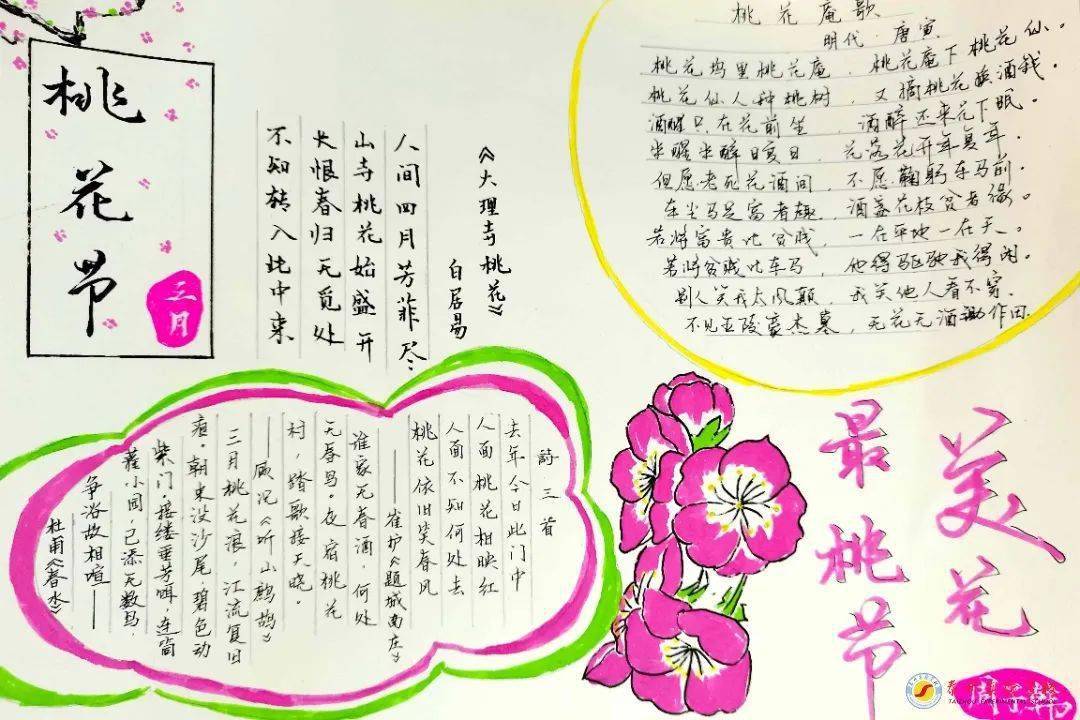 桃花节
三月
《大理寺桃花》
白居易
人间四月芳菲尽
山寺桃花始盛开
长恨春归无觅处
不知转入此中来
桃花庵歌
明代·唐寅
桃花坞里桃花庵，桃花庵下桃花仙。
桃花仙人种桃树，又摘桃花换酒钱。
酒醒只在花前坐，酒醉还来花下眠。
半醒半醉日复日，花落花开年复年。
但愿老死花酒间，不愿鞠躬车马前。
车尘马足富者趣，酒盏花枝贫者缘。
若将富贵比贫贱，一在平地一在天。
若将贫贱比车马，他得驱驰我得闲。
别人笑我太风颠，我笑他人看不穿。
不见五陵豪杰墓，无花无酒锄作田。
詩三首
去年今日此门中
人面桃花相映红
人面不知何处去
桃花依旧笑春风
——崔护《题城南庄》
谁家无春酒，何处
无春鸟。夜宿桃花
村，踏歌接天晓。
——顾况《听山鹧鸪》
三月桃花浪，江流复旧
痕。朝来没沙尾，碧色动
柴门。接缕垂芳饵，连筒
灌小园，已添无数鸟，
争浴故相喧——
杜甫《春水》
最美桃花节
周子韩
TAIZHOU EXPERIMENTAL SCHOOL